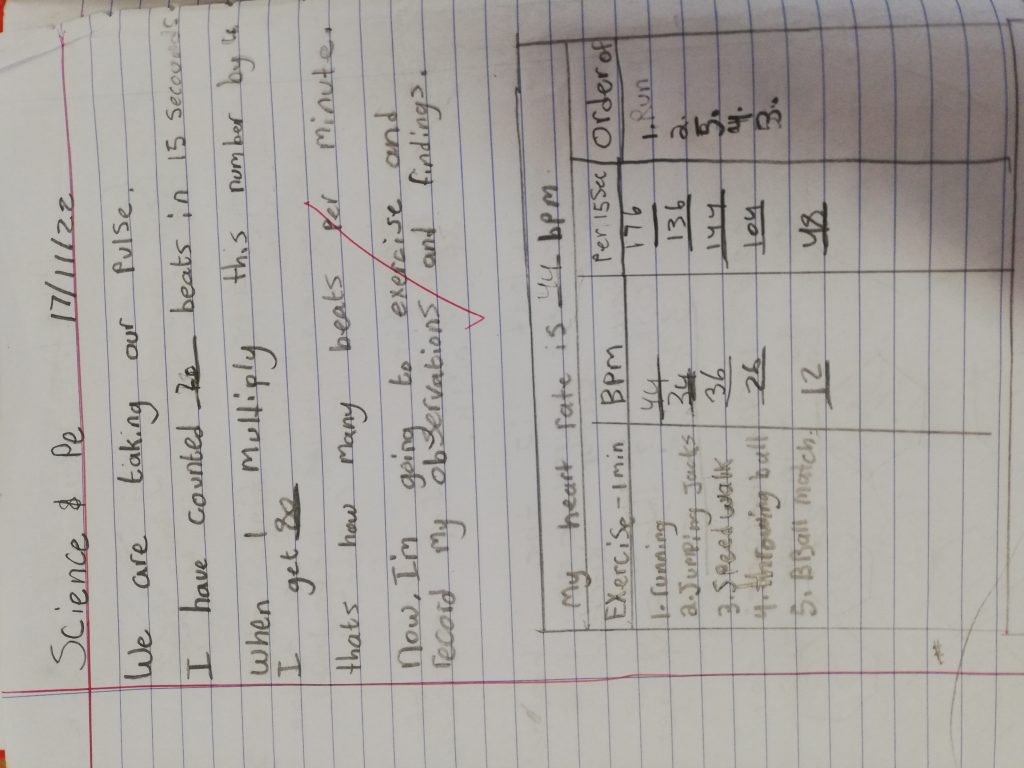 Science & Pe 17/11/22
We are taking our pulse.
I have counted 20 beats in 15 seconds
When I multiply this number by 4
I get 80
thats how many beats per minute.
Now, I'm going to exercise and
record my observations and findings.
My heart rate is 44 bpm.
Exercise - 1 min BPM Per. 15sec Order of
1. running 44 176 1. Run
2. Jumping Jacks 34 136 2.
3. Speed walk 36 144 5.
4. throwing ball 26 104 4.
3.
5. BBall match. 12 48